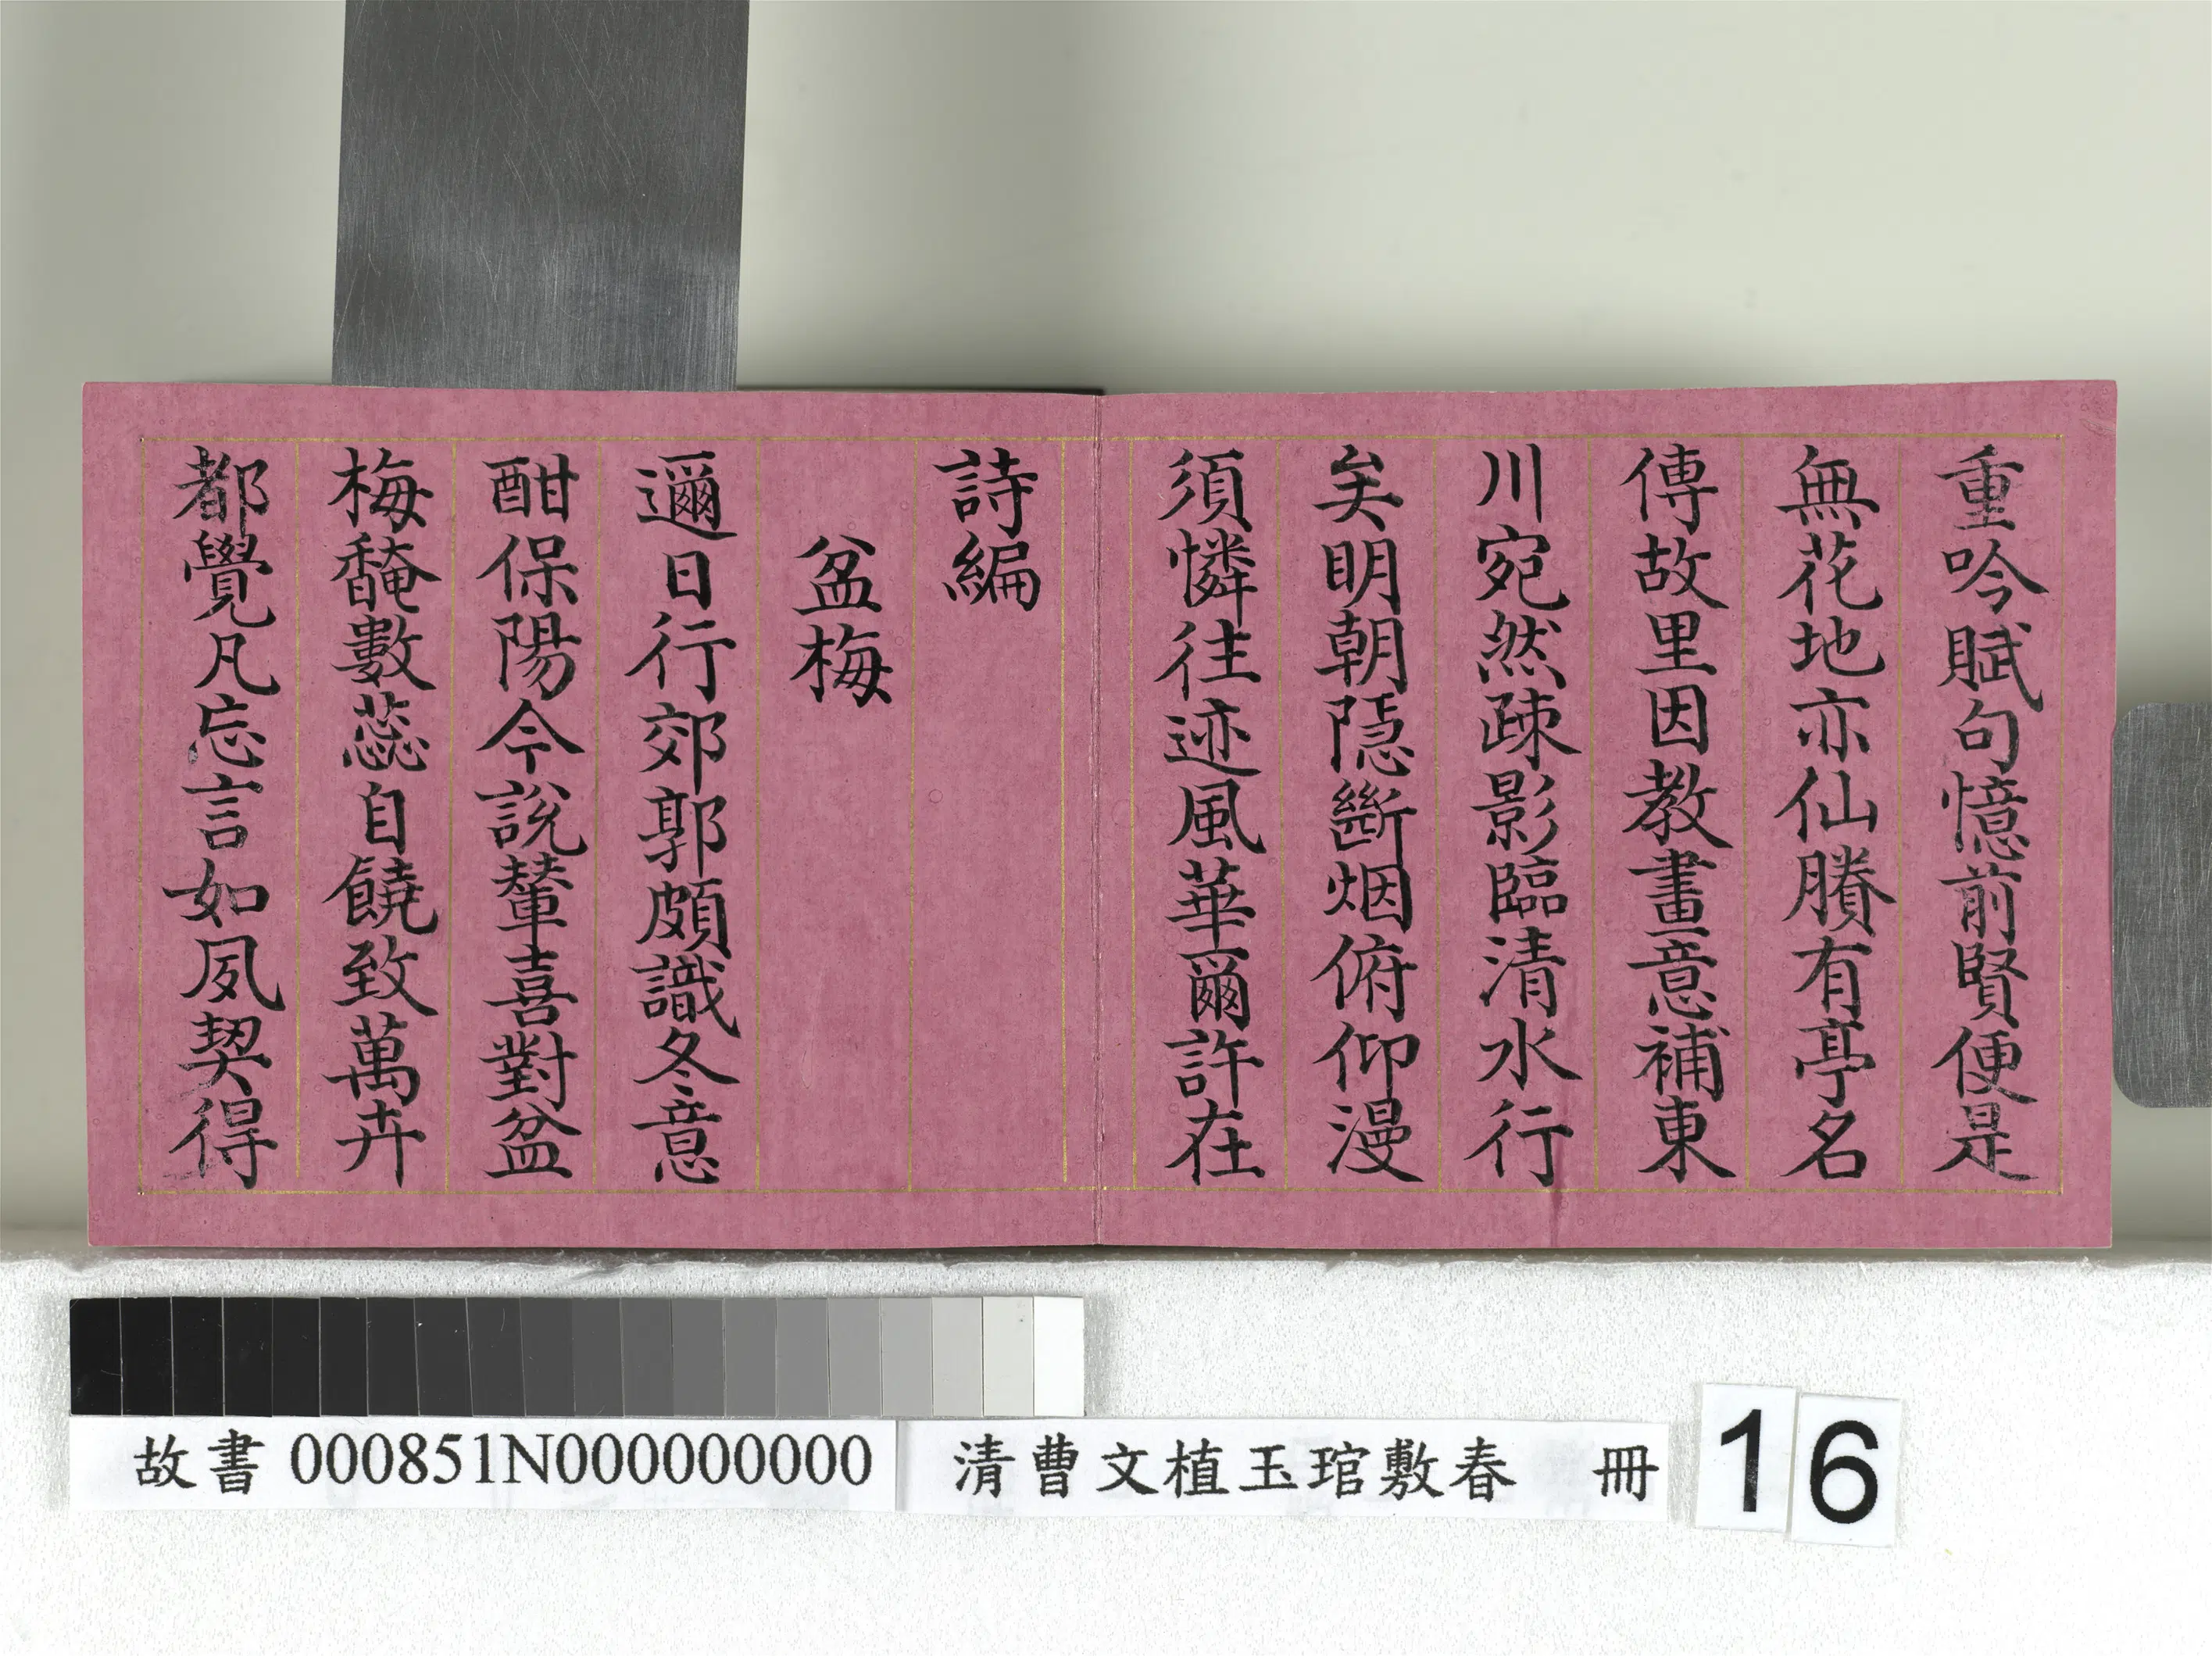 重吟賦句憶前賢便是
無花地亦仙賸有亭名
傳故里因教畫意補東
川宛然疎影臨清水行
矣明朝隠斷烟俯仰漫
須憐往迹風華爾許在
詩編
盆梅
邇日行郊郭頗識冬意
酣保陽今說輦喜對盆
梅馣數蕊自饒致萬卉
都覺凡忘言如夙契得
故書 000851N000000000
清曹文植玉琯敷春 冊
16